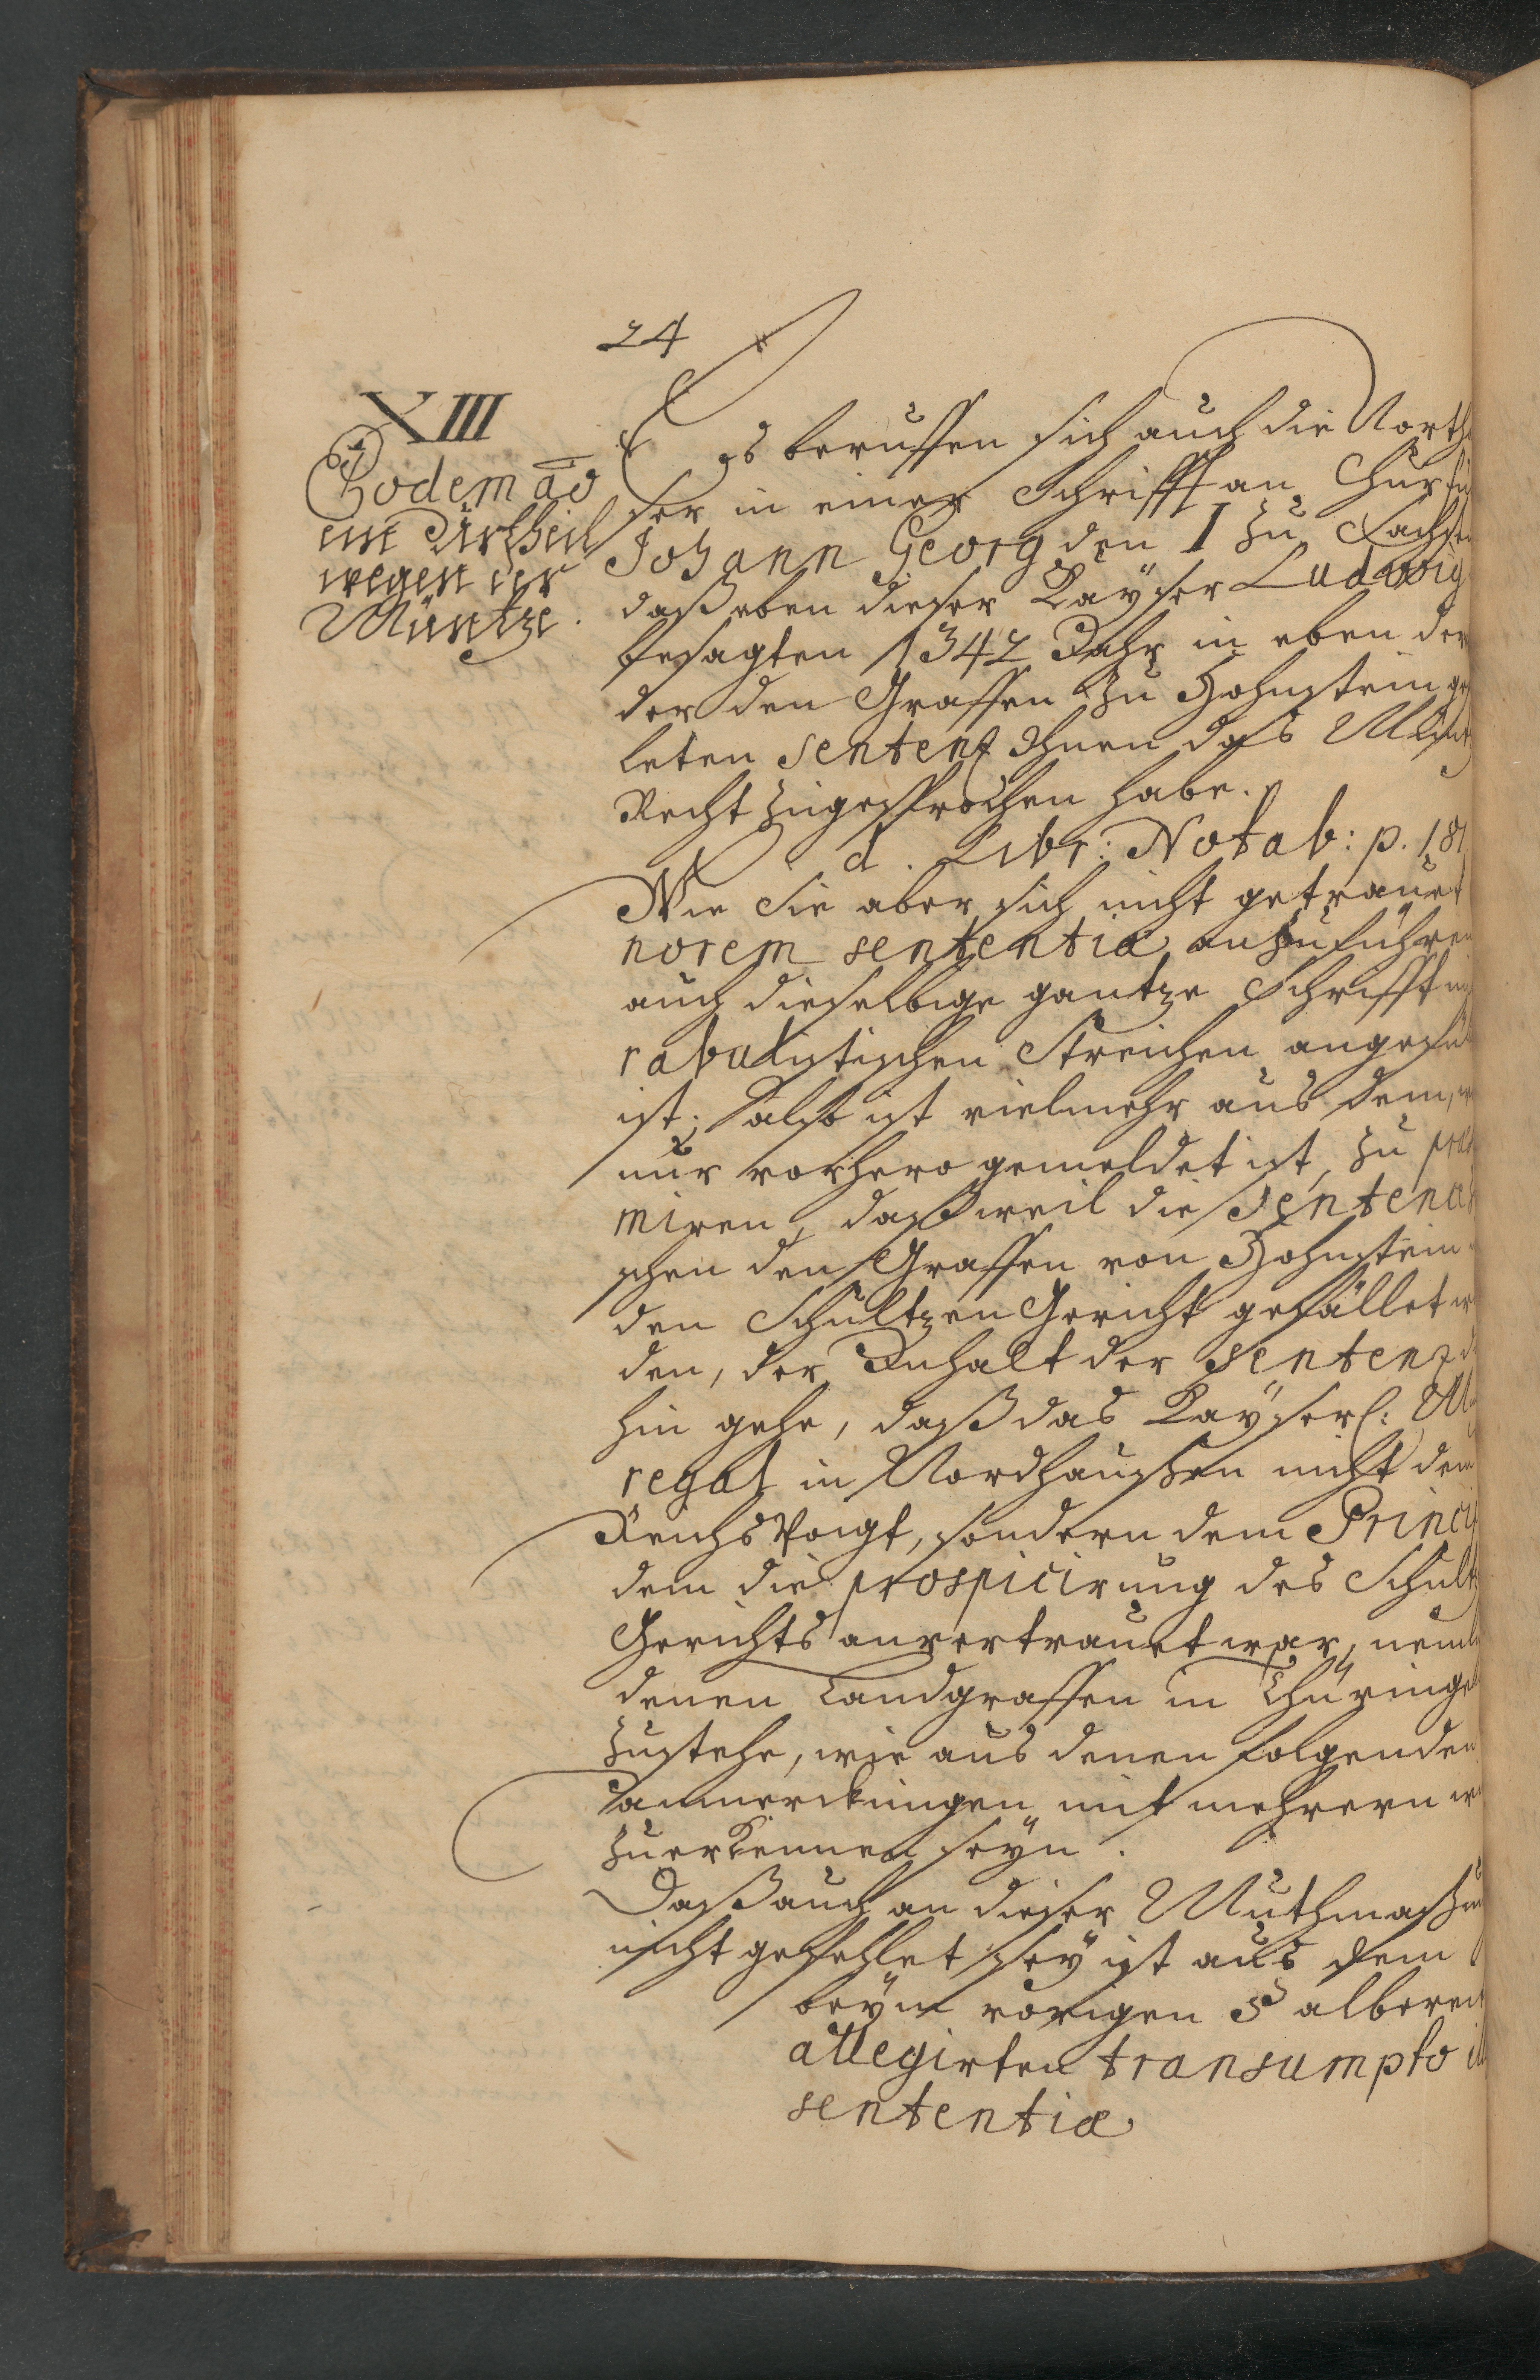 24
XIII
Eodem ao
ein Urtheil
wegen der
Müntze.
Es beruffen sich auch die North
ser in einer Schrifft an Churfü
Johann Georg den I zu Sachsen
daß eben dieser Kayser Ludwig
besagten 1342 Jahr in eben der
der den Graffen zu Hohnstein ge
leten Sentenz Ihnen das Müntz
Recht zugesprochen habe.
d. Libr: Notab: p. 181
Wie Sie aber sich nicht getrauet
norem sententiæ anzuführen
auch dieselbige gantze Schrifft mi
rabulistischen Streichen angefül
ist; also ist vielmehr aus dem, w
nur vorhero gemeldet ist, zu præs
miren, daß weil die Sentenz
schen den Graffen von Hohnstein
den Schultzen Gericht gefället w
den, der Inhalt der Sentenz da
hin gehe, daß das Kayserl: Mü
regal in Nordhaussen nicht dem
Reichs Voigt, sondern dem Princi
dem die prospicirung des Schult
Gerichts anvertrauet war, neml
denen Landgraffen in Thüringen
zustehe, wie aus denen folgenden
anmerckungen mit mehrern w
zu erkennen seyn.
Daß auch an dieser Muthmassun
nicht gefehlet sey ist aus dem
beym vorigen § albereit
allegirten transumpto ill
sententiæ